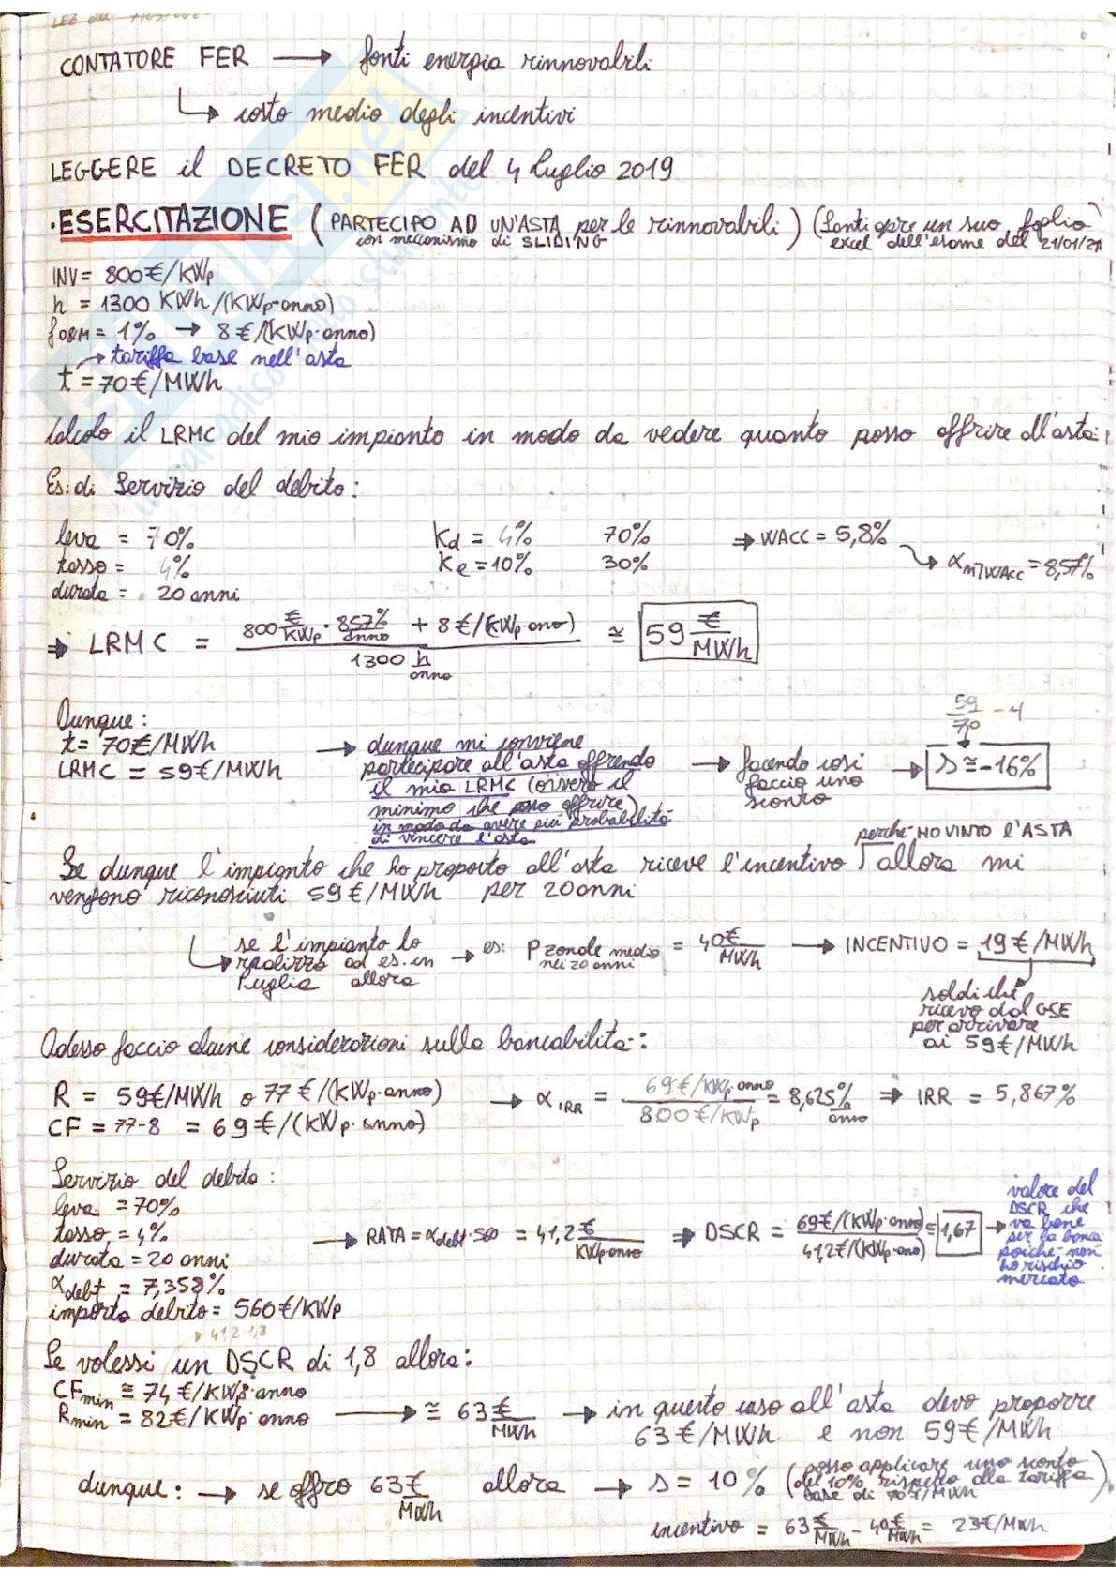 CONTATORE FER → fonti energia rinnovabili
↳ costo medio degli incentivi
LEGGERE il DECRETO FER del 4 luglio 2019
·ESERCITAZIONE (PARTECIPO AD UN'ASTA per le rinnovabili) (Senti apre un suo foglio
con meccanismo di SLIDING excel dell'esame del 21/01/21
INV = 800€/KWp
h = 1300 KWh/(KWp·anno)
fO&M = 1% → 8€/(KWp·anno)
→ tariffa base nell'asta
t = 70€/MWh
Calcolo il LRMC del mio impianto in modo da vedere quanto posso offrire all'asta:
Es: di Servizio del debito:
leva = 70% Kd = 4% 70% ⇒ WACC = 5,8%
tasso = 4% Ke = 10% 30% ↳ αm7WACC = 8,57%
durata = 20 anni
⇒ LRMC = (800 €/KWp · 8,57%/anno + 8€/(KWp·anno)) / 1300 h/anno ≅ 59 €/MWh
59/70 - 1
Dunque:
t = 70€/MWh → dunque mi conviene
LRMC = 59€/MWh partecipare all'asta offrendo → facendo così → s ≅ -16%
il mio LRMC (ovvero il faccio uno
minimo che posso offrire) sconto
in modo da avere più probabilità
di vincere l'asta.
perché HO VINTO l'ASTA
Se dunque l'impianto che ho proposto all'asta riceve l'incentivo allora mi
vengono riconosciuti 59€/MWh per 20 anni
↳ se l'impianto lo → es: P zonale medio = 40€/MWh → INCENTIVO = 19€/MWh
realizzo ad es. in nei 20 anni
Puglia allora
soldi che
ricevo dal GSE
per arrivare
ai 59€/MWh
Adesso faccio alcune considerazioni sulla bancabilità:
R = 59€/MWh o 77€/(KWp·anno) → αIRR = 69€/KWp·anno / 800€/KWp = 8,625%/anno ⇒ IRR = 5,867%
CF = 77-8 = 69€/(KWp·anno)
Servizio del debito:
leva = 70%
tasso = 4% → RATA = αdebt·560 = 41,2 €/KWp·anno ⇒ DSCR = 69€/(KWp·anno) / 41,2€/(KWp·anno) = 1,67 →
durata = 20 anni
αdebt = 7,358%
importo debito = 560€/KWp
valore del
DSCR che
va bene
per la banca
poiché non
ho rischio
mercato
→ 41,2·1,8
Se volessi un DSCR di 1,8 allora:
CFmin ≅ 74€/KWp·anno
Rmin = 82€/KWp·anno → ≅ 63€/MWh → in questo caso all'asta devo proporre
63€/MWh e non 59€/MWh
dunque: → se offro 63€/MWh allora → s = 10% (posso applicare uno sconto
del 10% rispetto alla tariffa
base di 70€/MWh)
incentivo = 63€/MWh - 40€/MWh = 23€/MWh